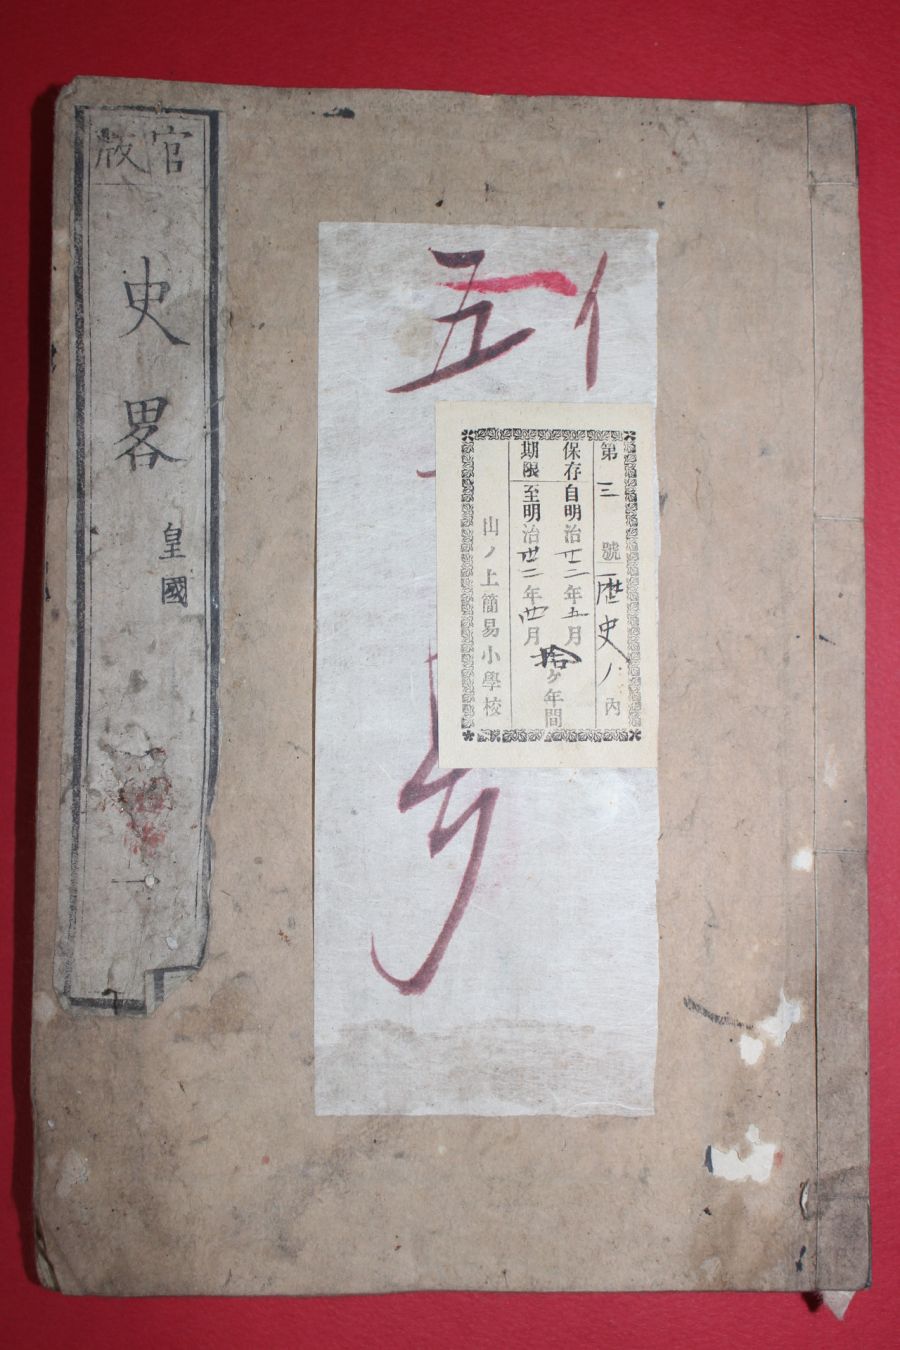 官版
史畧
皇國
一
イ
五
号
第三號
歴史ノ内
保存
期限
自明治廿二年五月
至明治卅二年四月
拾ケ年間
山ノ上簡易小學校